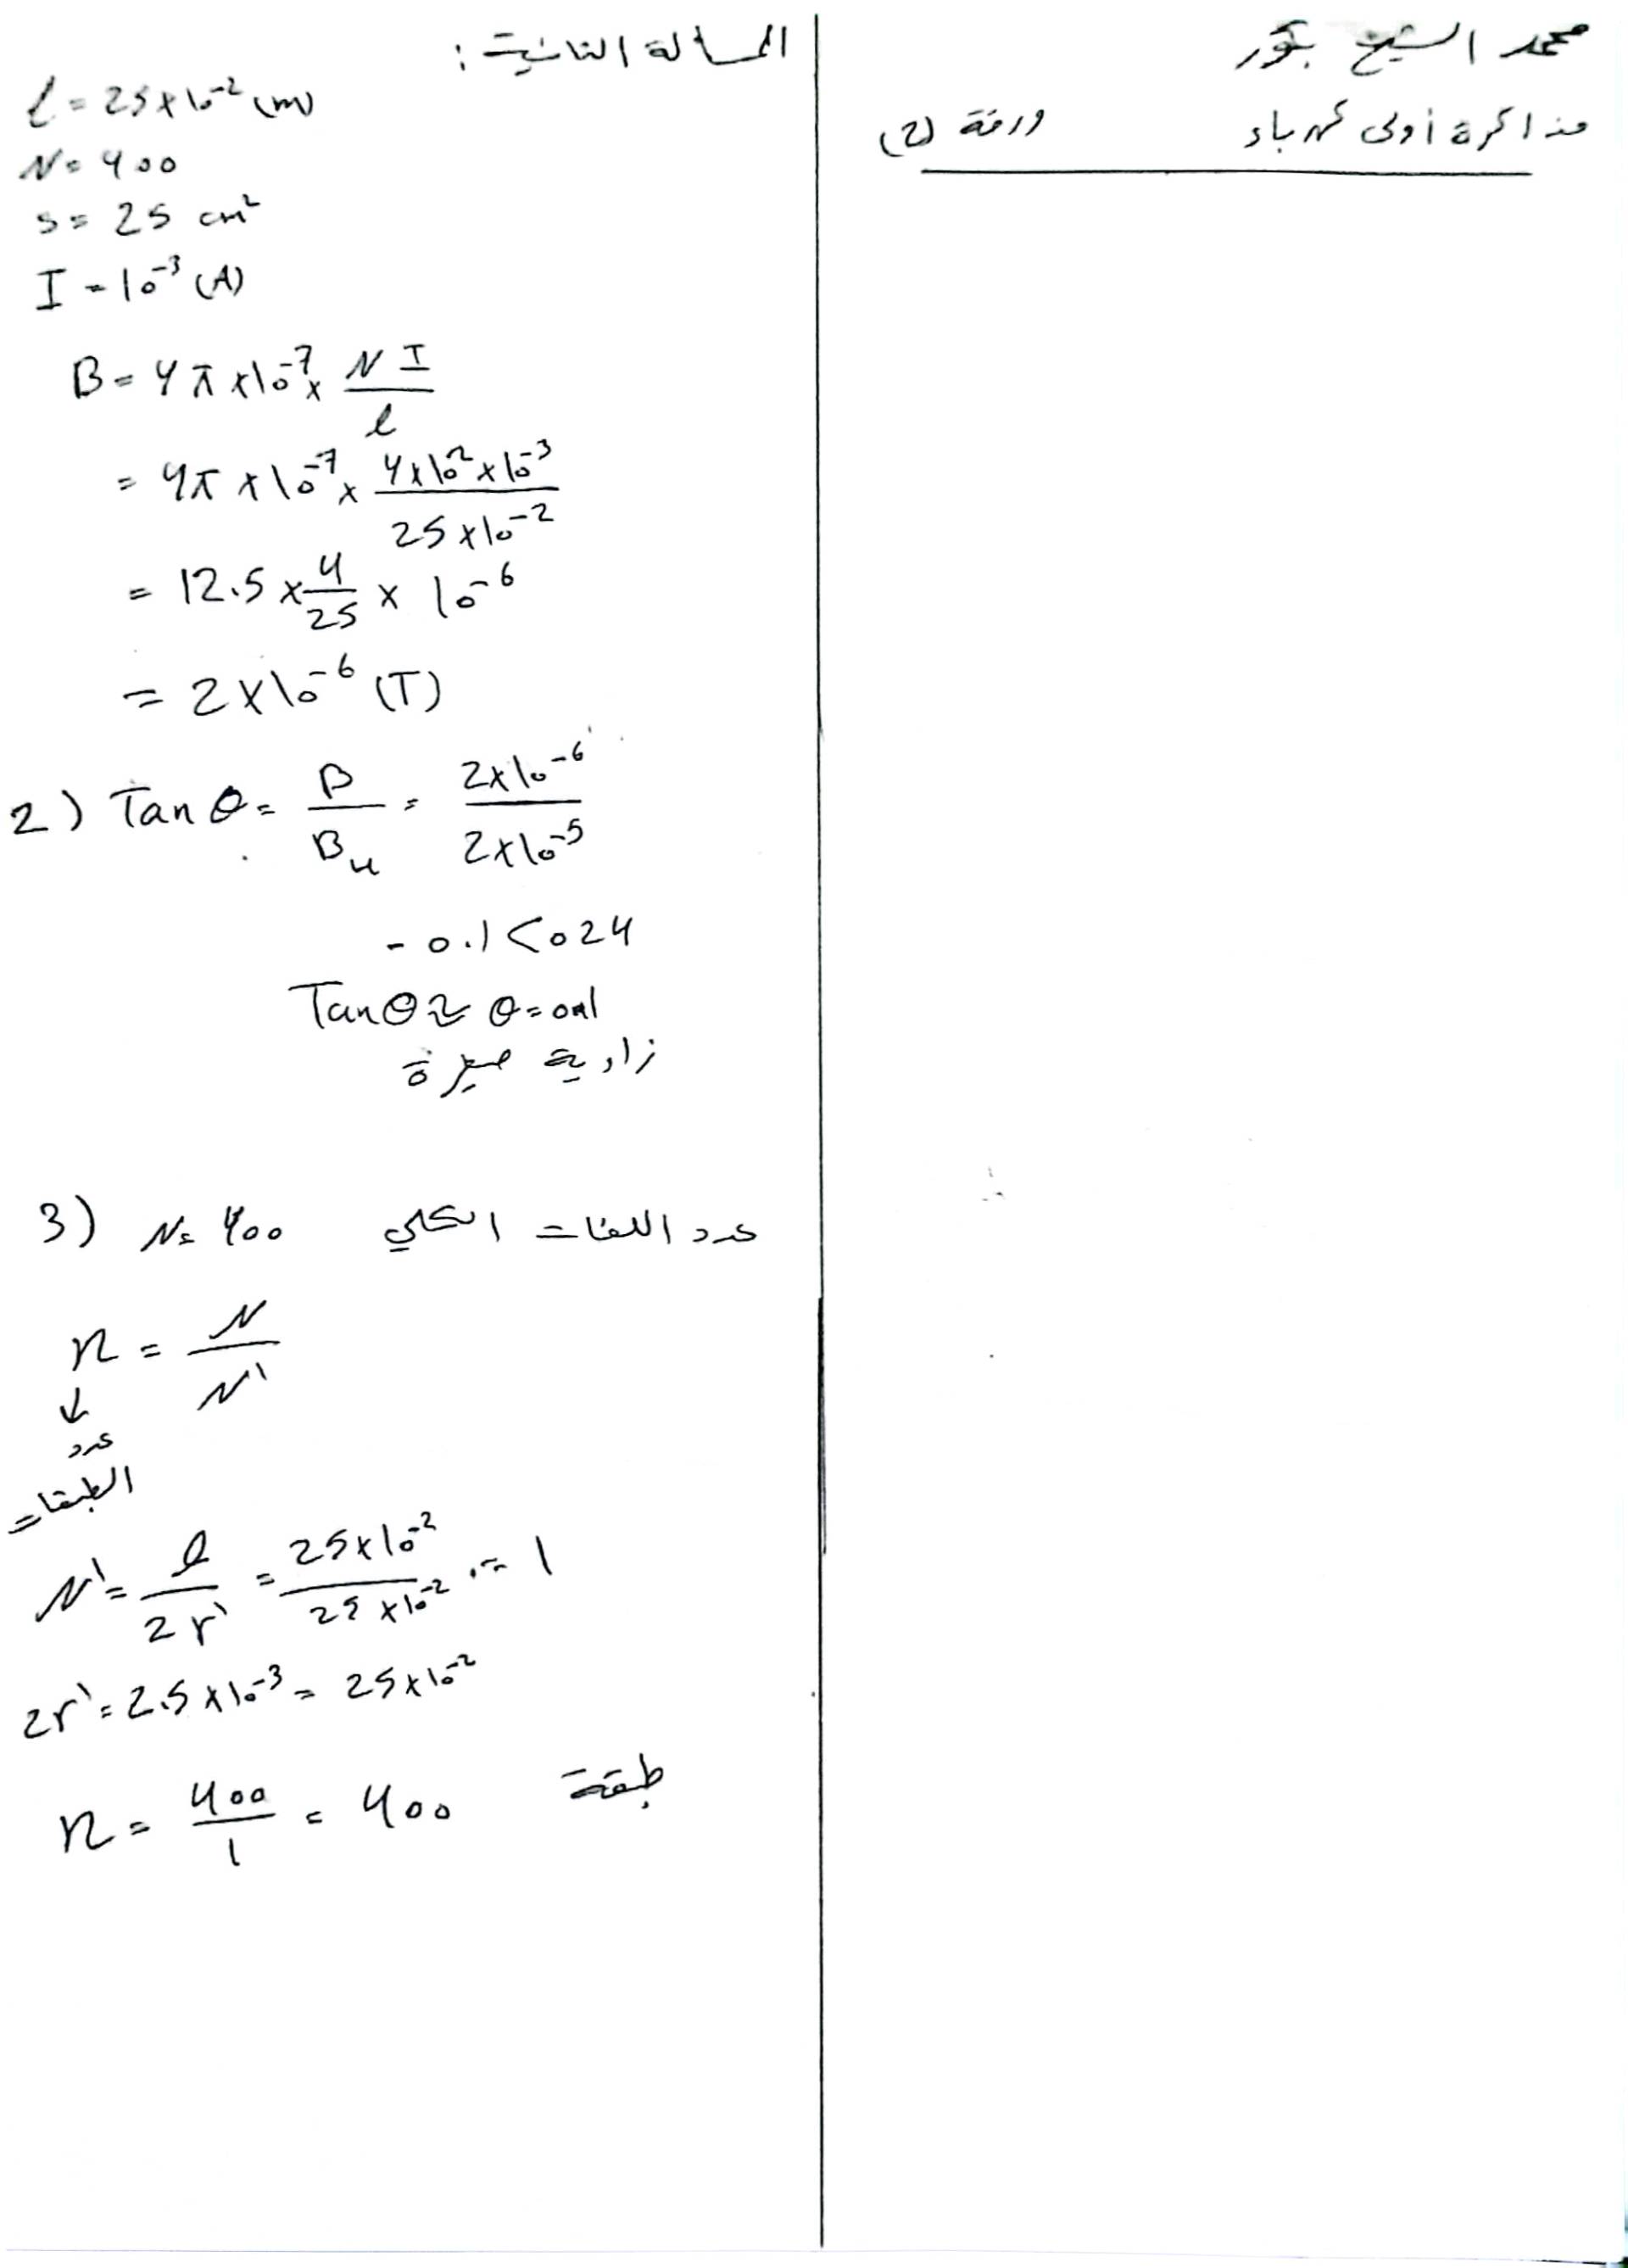 محمد الشيخ بكور
مذاكرة أولى كهرباء ورقة (2)
المسألة الثانية:
l = 25×10⁻² (m)
N = 400
s = 25 cm²
I = 10⁻³ (A)
B = 4π×10⁻⁷ × N I / l
= 4π×10⁻⁷ × 4×10²×10⁻³ / 25×10⁻²
= 12.5 × 4/25 × 10⁻⁶
= 2×10⁻⁶ (T)
2) Tan θ = B / B_H = 2×10⁻⁶ / 2×10⁻⁵
= 0.1 < 0.24
Tan θ ≈ θ = 0.1
زاوية صغيرة
3) N = 400 عدد اللفات الكلي
n = N / N'
↓
عدد
الطبقات
N' = l / 2r' = 25×10⁻² / 25×10⁻² = 1
2r' = 2.5×10⁻³ = 25×10⁻²
n = 400 / 1 = 400 طبقة